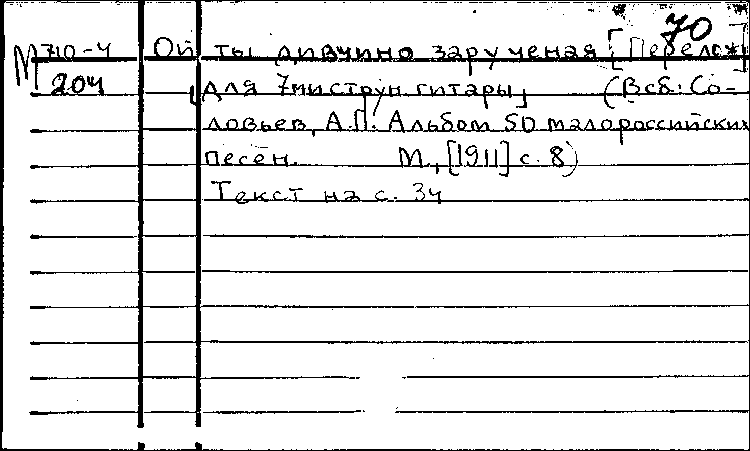 70
М 710-4 Ой ты дивчино заручена я [Перелож
204 для 7миструн. гитары] (В сб: Со-
ловьев, А.П. Альбом 50 малороссийских
песен. М., [1911] с. 8)
Текст на с. 34